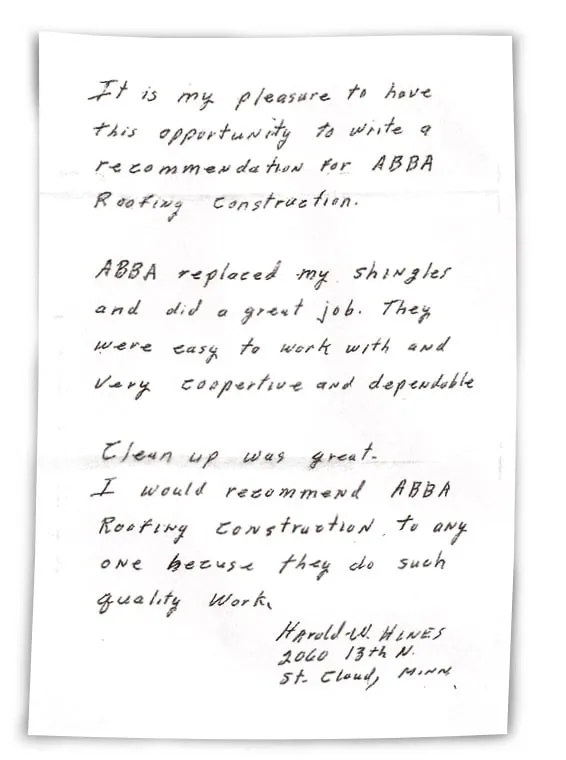 It is my pleasure to have
this opportunity to write a
recommendation for ABBA
Roofing Construction.
ABBA replaced my shingles
and did a great job. They
were easy to work with and
very coopertive and dependable
Clean up was great.
I would recommend ABBA
Roofing Construction to any
one becuse they do such
quality work.
Harold W. Hines
2060 13th N.
St. Cloud, Minn.